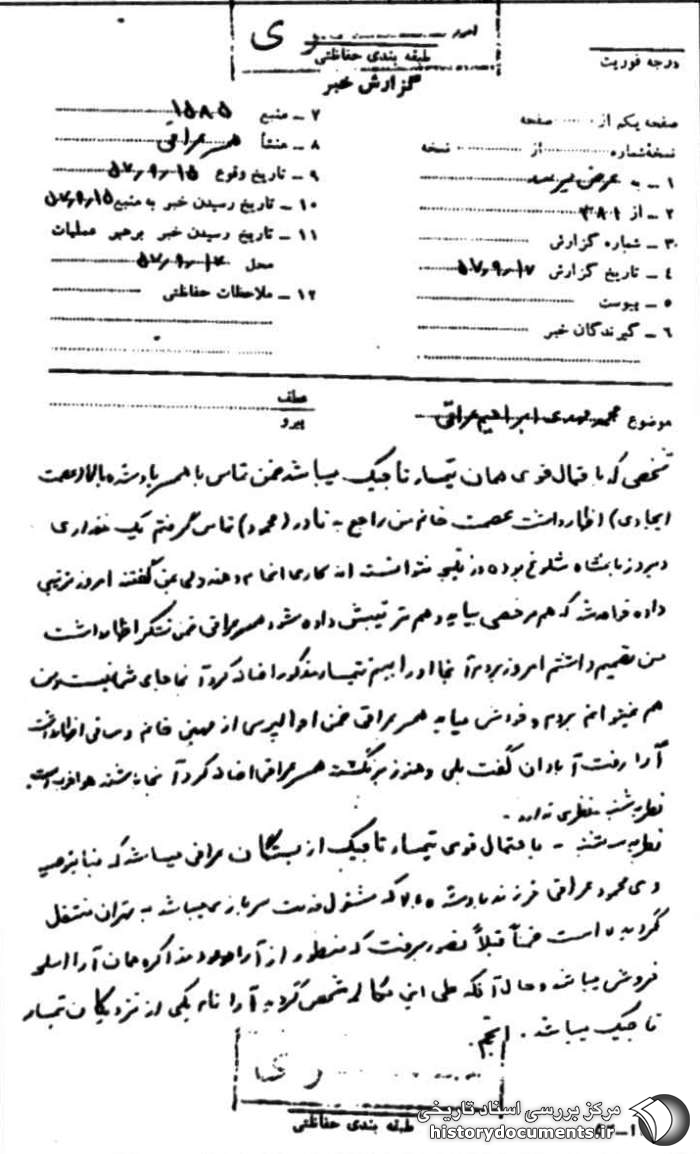 طبقه بندی حفاظتی
گزارش خبر
درجه فوریت
صفحه یکم از ........ صفحه
نسخه شماره ........ از ........ نسخه
۱ ـ به عرض میرسد
۲ ـ از ۳۸۱
۳ ـ شماره گزارش
۴ ـ تاریخ گزارش ۵۷٫۹٫۱۷
۵ ـ پیوست
۶ ـ گیرندگان خبر
۷ ـ منبع ۱۵۸۵
۸ ـ منشأ همسر عراقی
۹ ـ تاریخ وقوع ۵۷٫۹٫۱۵
۱۰ ـ تاریخ رسیدن خبر به منبع ۵۷٫۹٫۱۵
۱۱ ـ تاریخ رسیدن خبر برهبر عملیات
محل ۵۷٫۹٫۱۷
۱۲ ـ ملاحظات حفاظتی
موضوع محمد مهدی ابراهیم عراقی
عطف
پیرو
شخصی که باحتمال قوی همان تیمسار تاجیک میباشد ضمن تماس با همسر یادشده بالا (عصمت
) اظهار داشت عصمت خانم من راجع به نادر (محمود) تماس گرفتم یک مقداری
دیروز شلوغ بوده در نتیجه نتوانسته اند کاری انجام دهند ولی بمن گفتند امروز ترتیبی
داده خواهد شد که هم مرخصی بیاید و هم ترتیبش داده شود همسر عراقی ضمن تشکر اظهار داشت
من تصمیم داشتم امروز بروم آنجا او را ببینم تیمسار مذکور اضافه کرد آنجا جای شما نیست من
هم نمیتوانم بروم خودش میاید همسر عراقی ضمن احوالپرسی از مهین خانم و ساقی اظهار داشت
آرا رفت آبادان گفت بلی و هنوز برنگشته همسر عراقی اضافه کرد آنجا باشند هوا خوب است.
نظریه شنبه ـ نظری ندارد.
نظریه سه شنبه ـ باحتمال قوی تیمسار تاجیک از بستگان عراقی میباشد که بنا بتوصیه
وی محمود عراقی فرزند یادشده بالا که مشغول خدمت سربازی میباشد به تهران منتقل
گردیده است ضمناً قبلاً تصور میرفت که منظور از آرا در مذاکره همان آرا اسلحه
فروش میباشد و حال آنکه طی این مکالمه مشخص گردید آرا نام یکی از نزدیکان تیمسار
تاجیک میباشد. انجم
طبقه بندی حفاظتی
مرکز بررسی اسناد تاریخی
historydocuments.ir